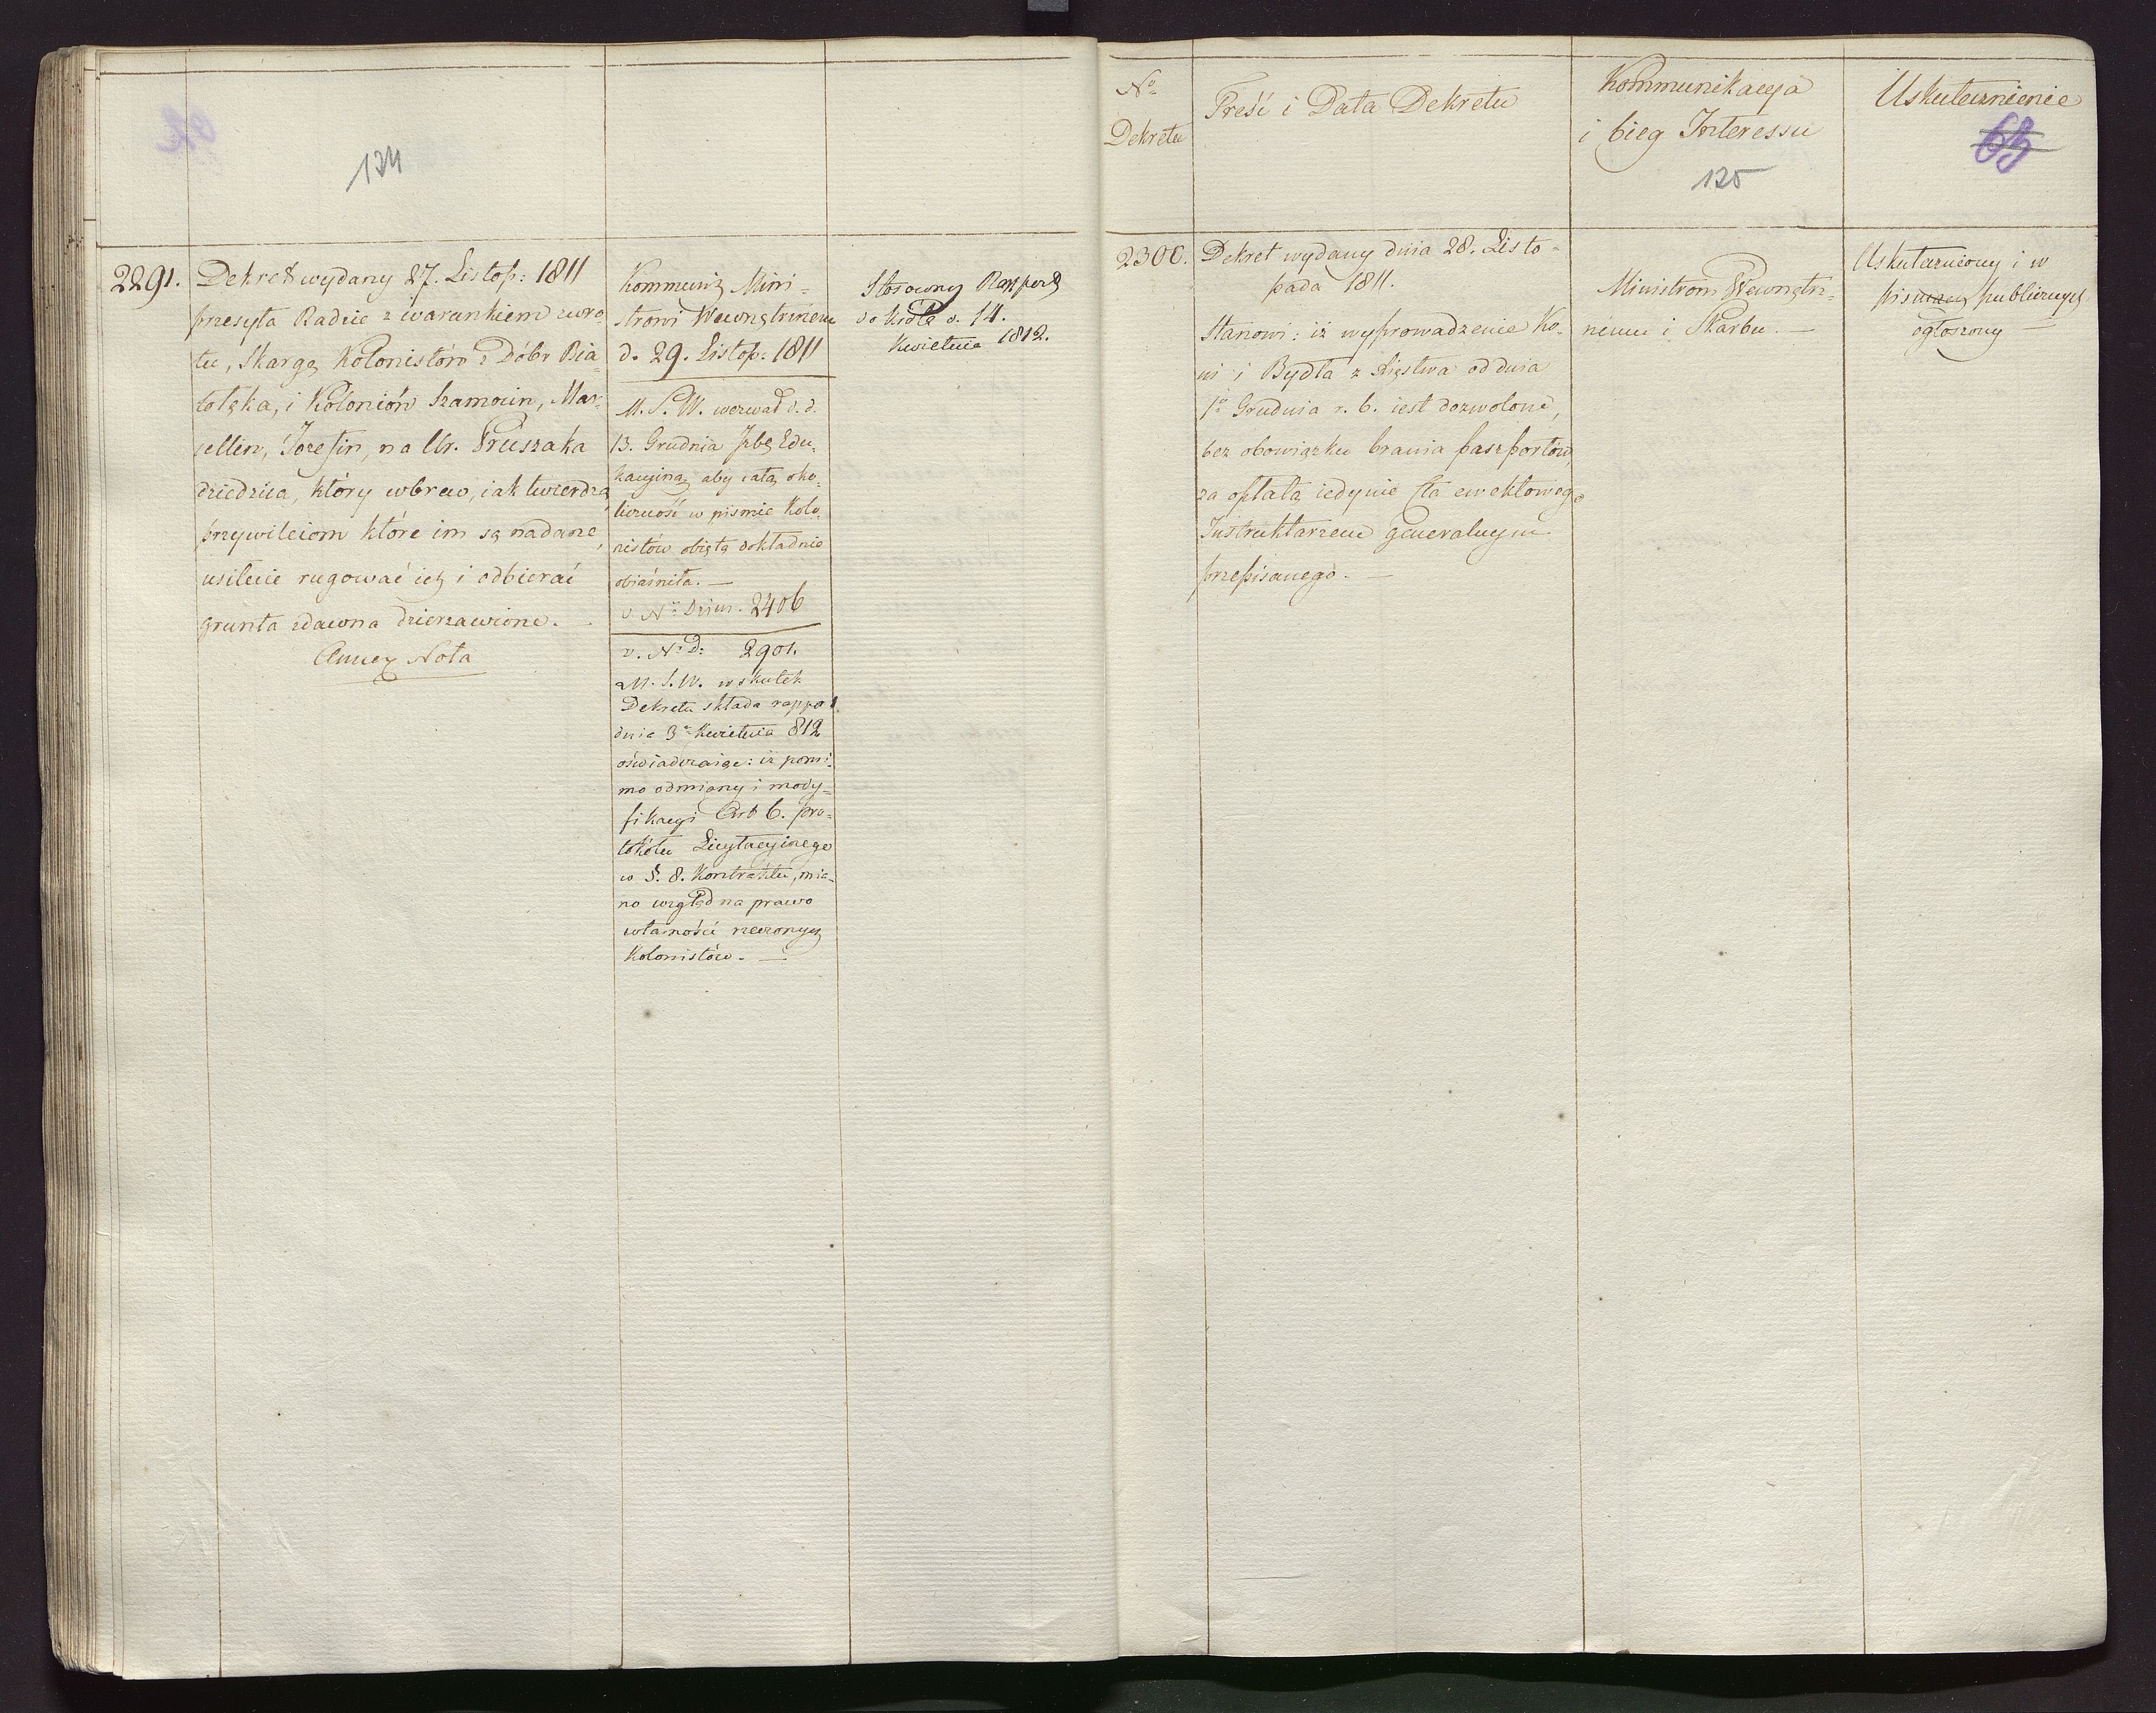 134
2291.
Dekret wydany 27. Listop: 1811
przesyła Radzie z warunkiem zwro-
tu, Skargę Kolonistów z Dóbr Bia-
łołęka, i Koloniów Szamocin, Mar-
cellin, Jozefin, na Ur. Pruszaka
dziedzica, który wbrew, iak twierdzą,
przywileiom które im są nadane,
usiłuie rugować ich i odbierać
grunta zdawna dzierzawione. —
Annex Nota
Kommunik Mini-
strowi Wewnętrznemu
d. 29. Listop: 1811
M. S. W. wezwał d. d.
13. Grudnia Izbę Edu-
kacyiną, aby całą oko-
liczność w pismie Kolo-
nistów obiętą dokładnie
obiaśniła. —
v. Nº Dzien. 2406
v. Nº D: 2901.
M. S. W. w skutek
Dekretu składa rapport
dnia 3º Kwietnia 812
oświadczaiąc: iż pomi-
mo odmiany i mody-
fikacyi Art 6. pro-
tokółu Licytacyinego
w §. 8. Kontraktu, mia-
no wzgląd na prawo
własności rzeczonych
Kolonistów. —
Stosowny Rapport
do Króla d. 14.
Kwietnia 1812.
Nº
Dekretu
Treść i Data Dekretu
Kommunikacya
i bieg Interessu
125
Uskutecznienie
63
2300.
Dekret wydany dnia 28. Listo-
pada 1811.
Stanowi: iż wyprowadzenie Ko-
ni i Bydła z Xięstwa od dnia
1º Grudnia r. b. iest dozwolone,
bez obowiązku brania paszportów,
za opłatą iedynie Cła ewektowego
Instruktarzem generalnym
przepisanego. —
Ministrom Wewnętrz-
nemu i Skarbu. —
Uskuteczniony i w
pismach publicznych
ogłoszony —